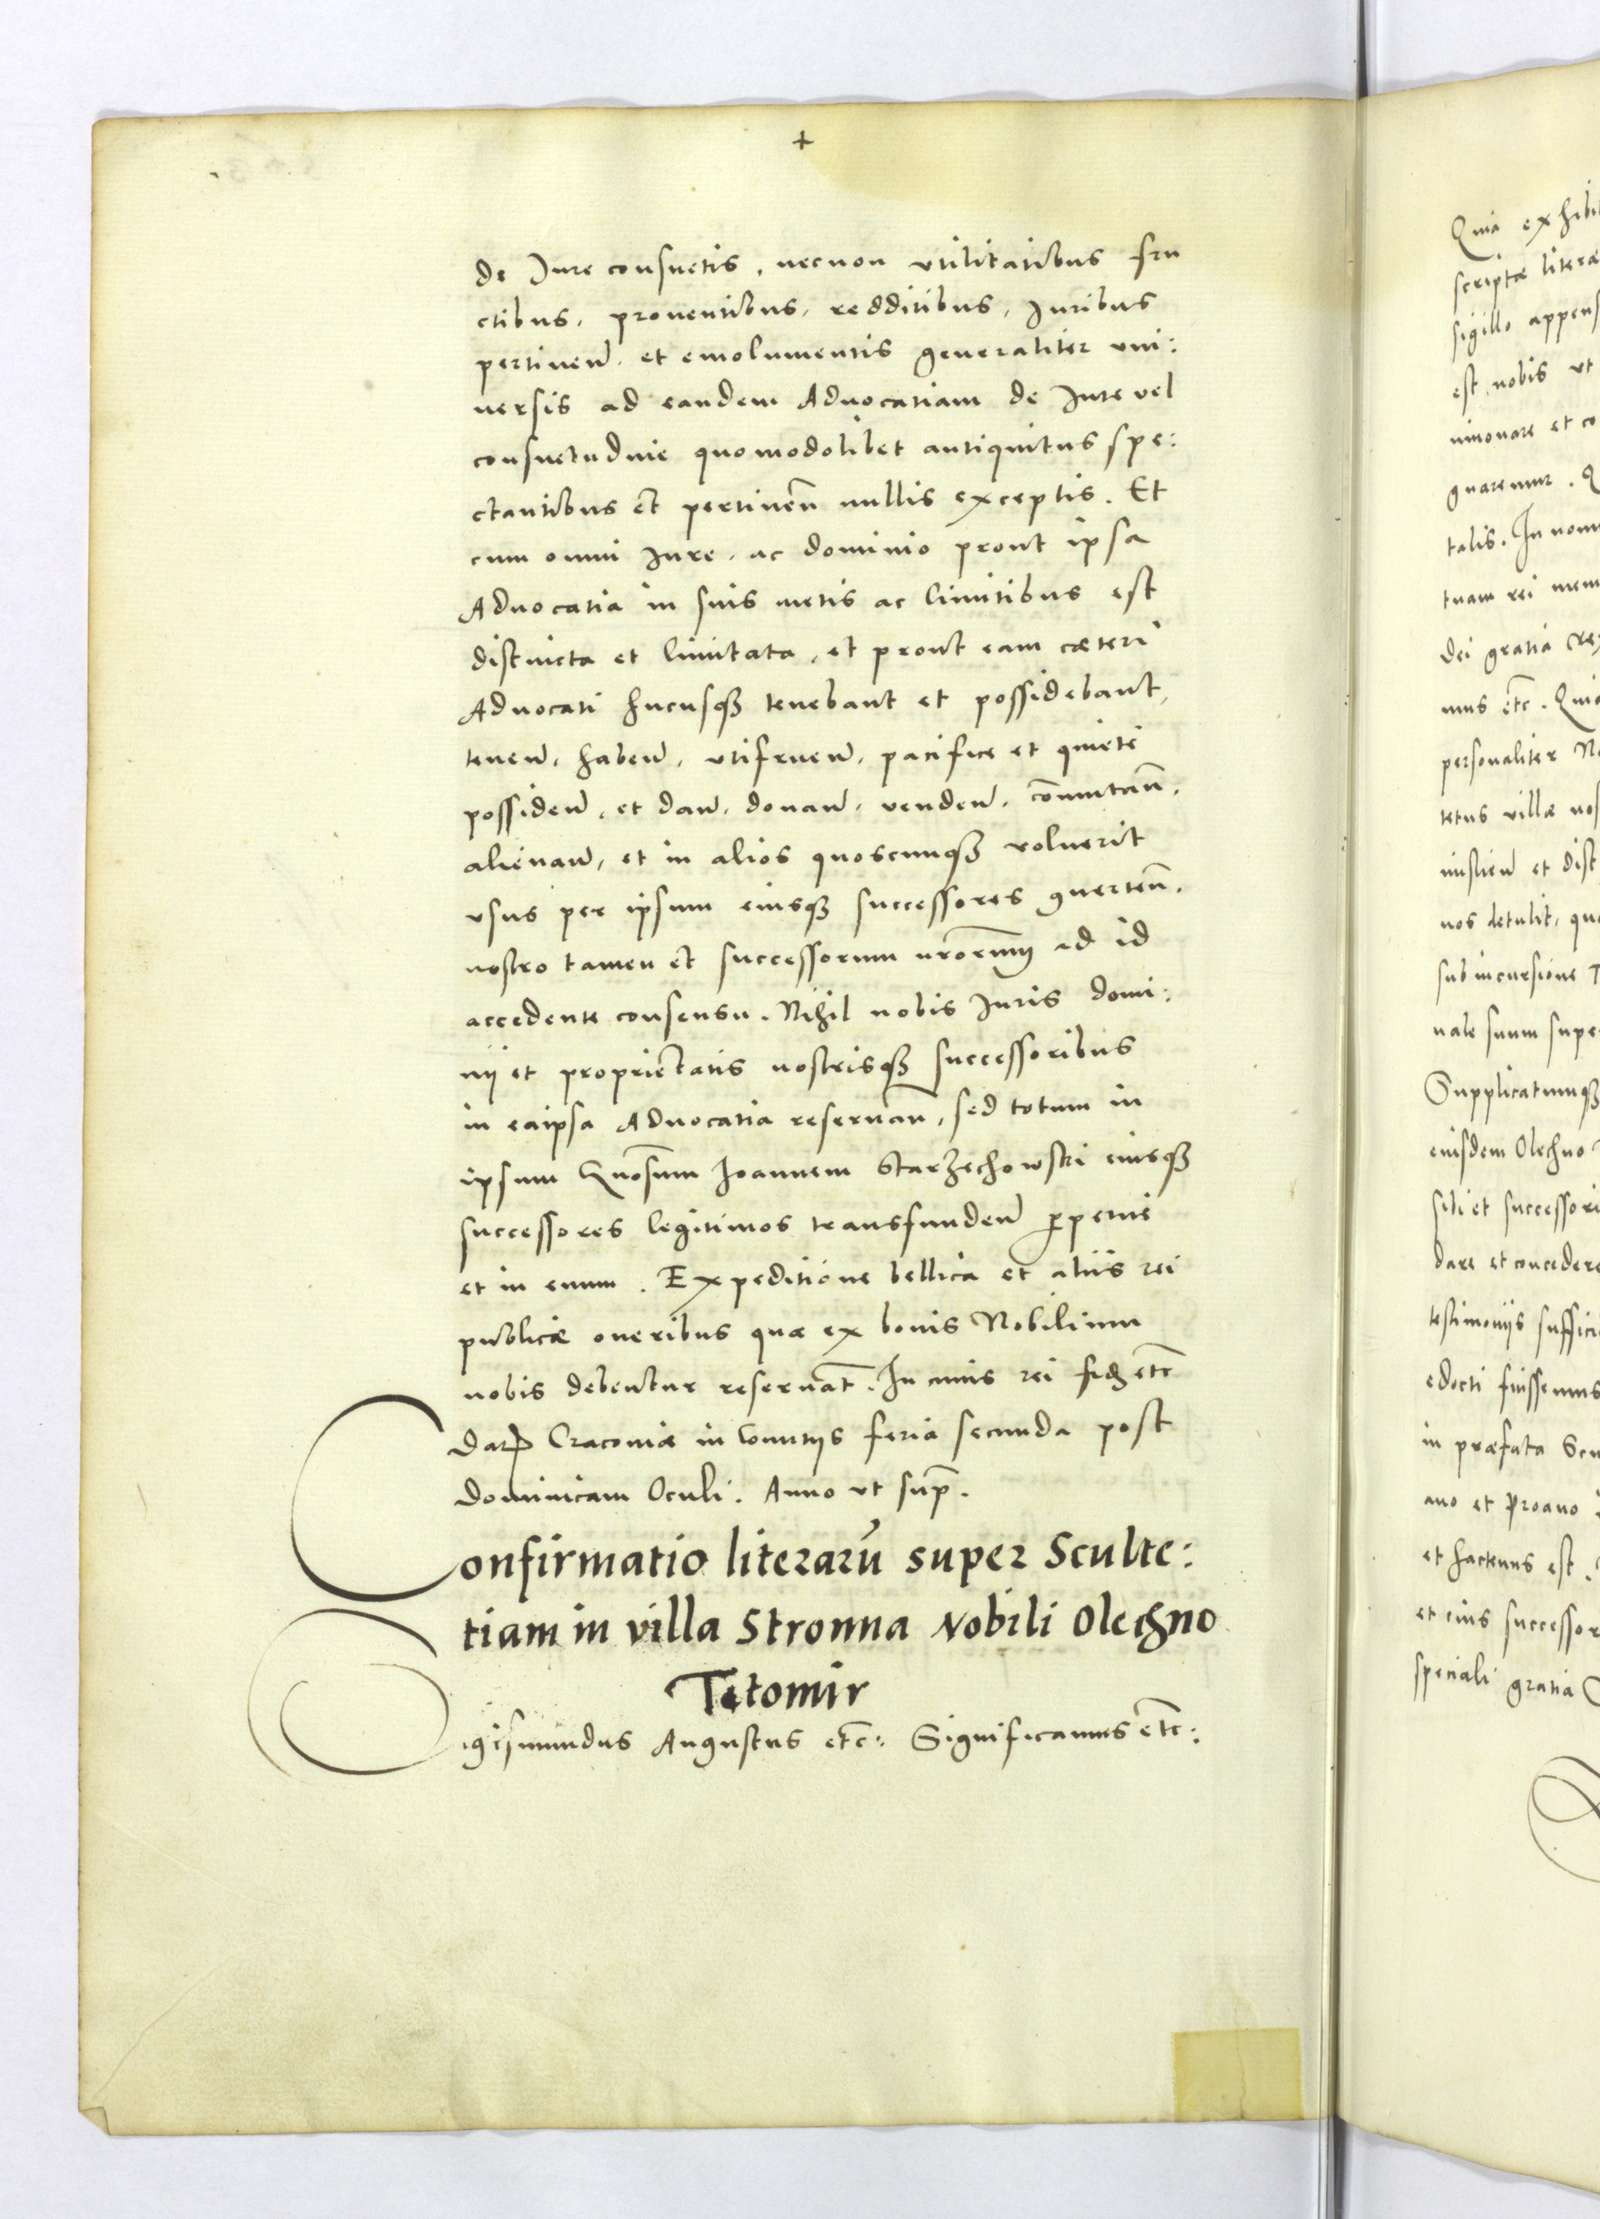 +
de Jure consuetis, necnon utilitatibus fru
ctibus, proventibus, redditibus, Juribus
pertinen̄. et emolumentis generaliter uni:
uersis ad eandem Aduocatiam de Jure vel
consuetudine quomodolibet antiquitus spe:
ctantibus et pertinen̄ nullis exceptis. Et
cum omni Jure, ac dominio prout ipsa
Aduocatia in suis metis ac limitibus est
distincta et limitata, et prout eam cæteri
Aduocati hucusqꝫ tenebant et possidebant,
tenen̄, haben̄, utifruen̄, pacifice et quiete
possiden̄, et dan̄, donan̄, venden̄, cōmutan̄,
alienan̄, et in alios quoscunqꝫ voluerit
usus per ipsum eiusqꝫ successores ꝯuerten̄.
nostro tamen et successorum nrorum ad id
accedente consensu. Nihil nobis Juris domi:
nij et proprietatis nostrisqꝫ successoribus
in eaipsa Aduocatia reseruan̄, sed totum in
ipsum Gnosum Joannem Starzechowski eiusqꝫ
successores legitimos transfunden̄ ꝑpetue
et in euum. Expeditione bellica et aliis rei
publicæ oneribus quæ ex bonis Nobilium
nobis debentur reseruat̄. In cuius rei fidꝫ etc̄
Dat̄ Cracouiæ in Conuētijs feria secunda post
dominicam Oculi. Anno ut sup̄.
Confirmatio literarū super Sculte:
tiam in villa Stronna Nobili Olechno
Tetomir
Sigismundus Augustus etc̄: Significamus etc̄:
Quia exhibit
scriptæ literæ
sigillo appens
est nobis ut
minonare et co
gnaremur. Q
talis. In nom
tuam rei mem
dei gratia Rex
mus etc̄. Quia
personaliter No
tetus villæ nos
et dist
nos detulit, quo
sub incursione T
nale suum supe
Supplicatumqꝫ
eiusdem Olechno
sibi et successori
dare et concedere
testimonijs suffici
edocti fuissemus
in præfata Scu
auo et Proauo
et hactenus est.
et eius successor
speciali gratia